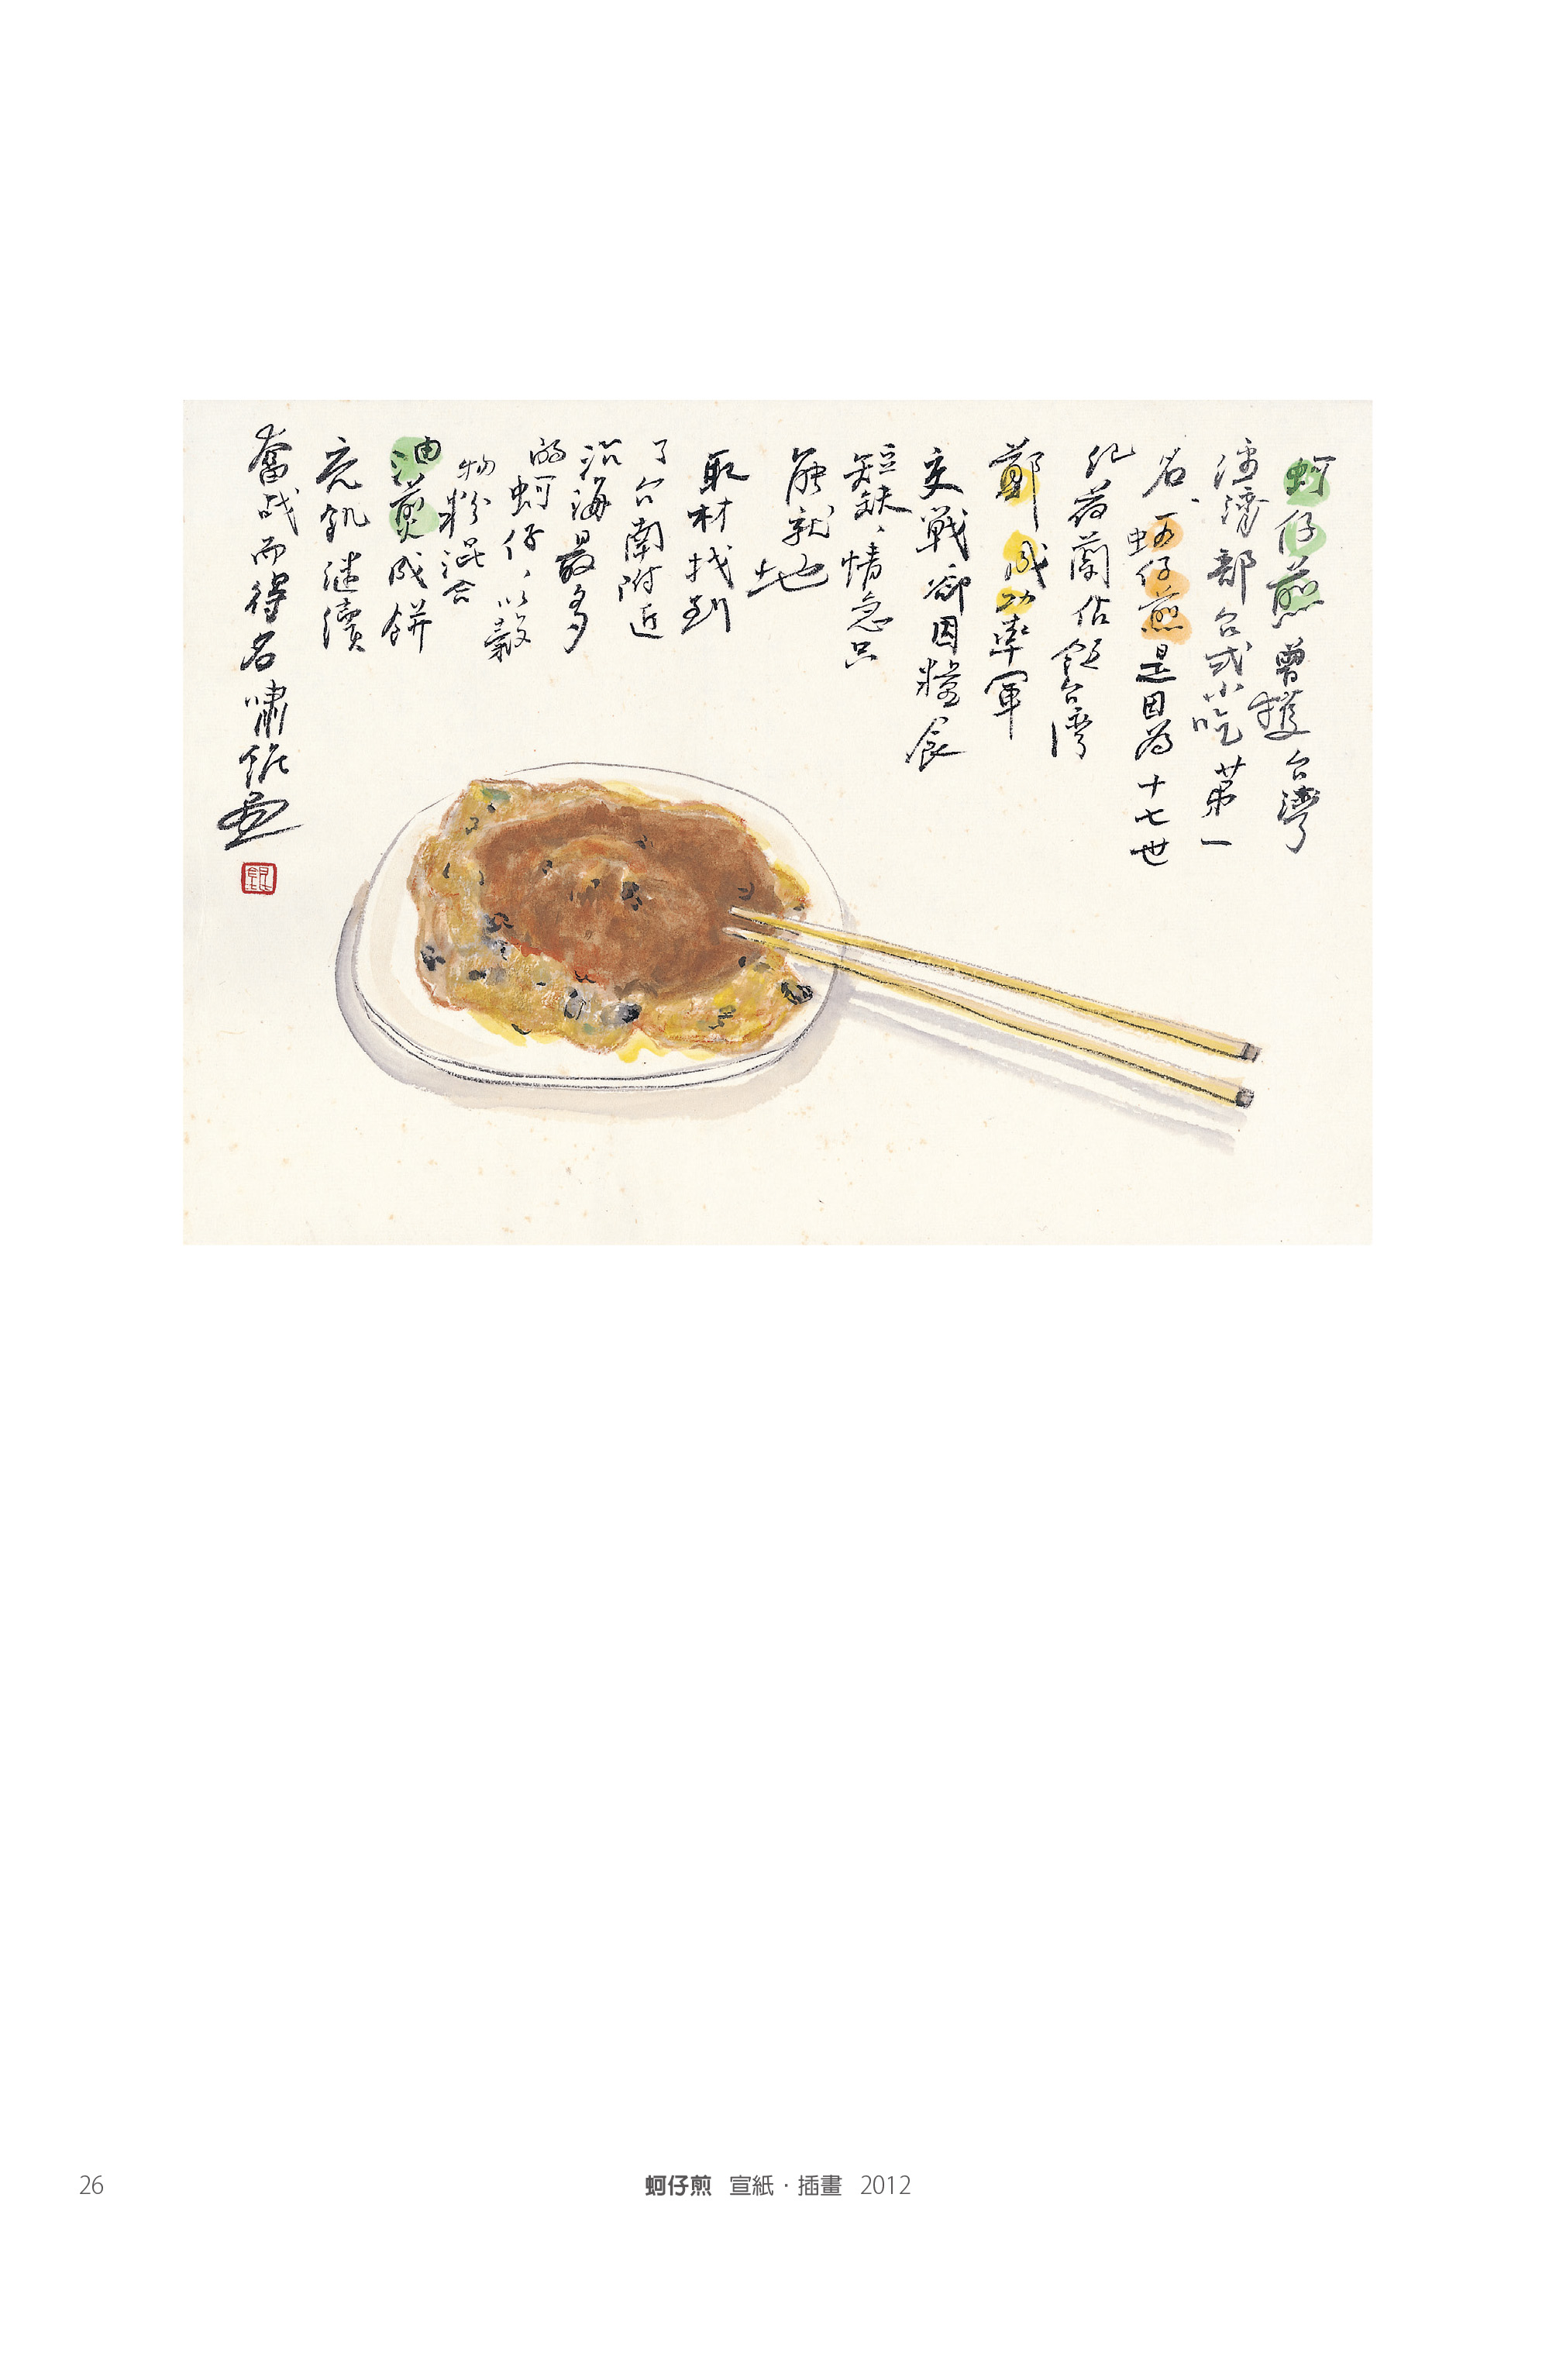 蚵仔煎曾獲台灣
經濟部台式小吃第一
名、仔煎是因為十七世
紀荷蘭佔台灣
鄭成功率軍
交戰卻因糧食
短缺、情急只
能就地
取材找到
了台南附近
沿海最多
的蚵仔、以穀
物粉混合
油煎成餅
充飢继續
奮战而得名 嘯画
26
蚵仔煎 宣紙·插畫 2012